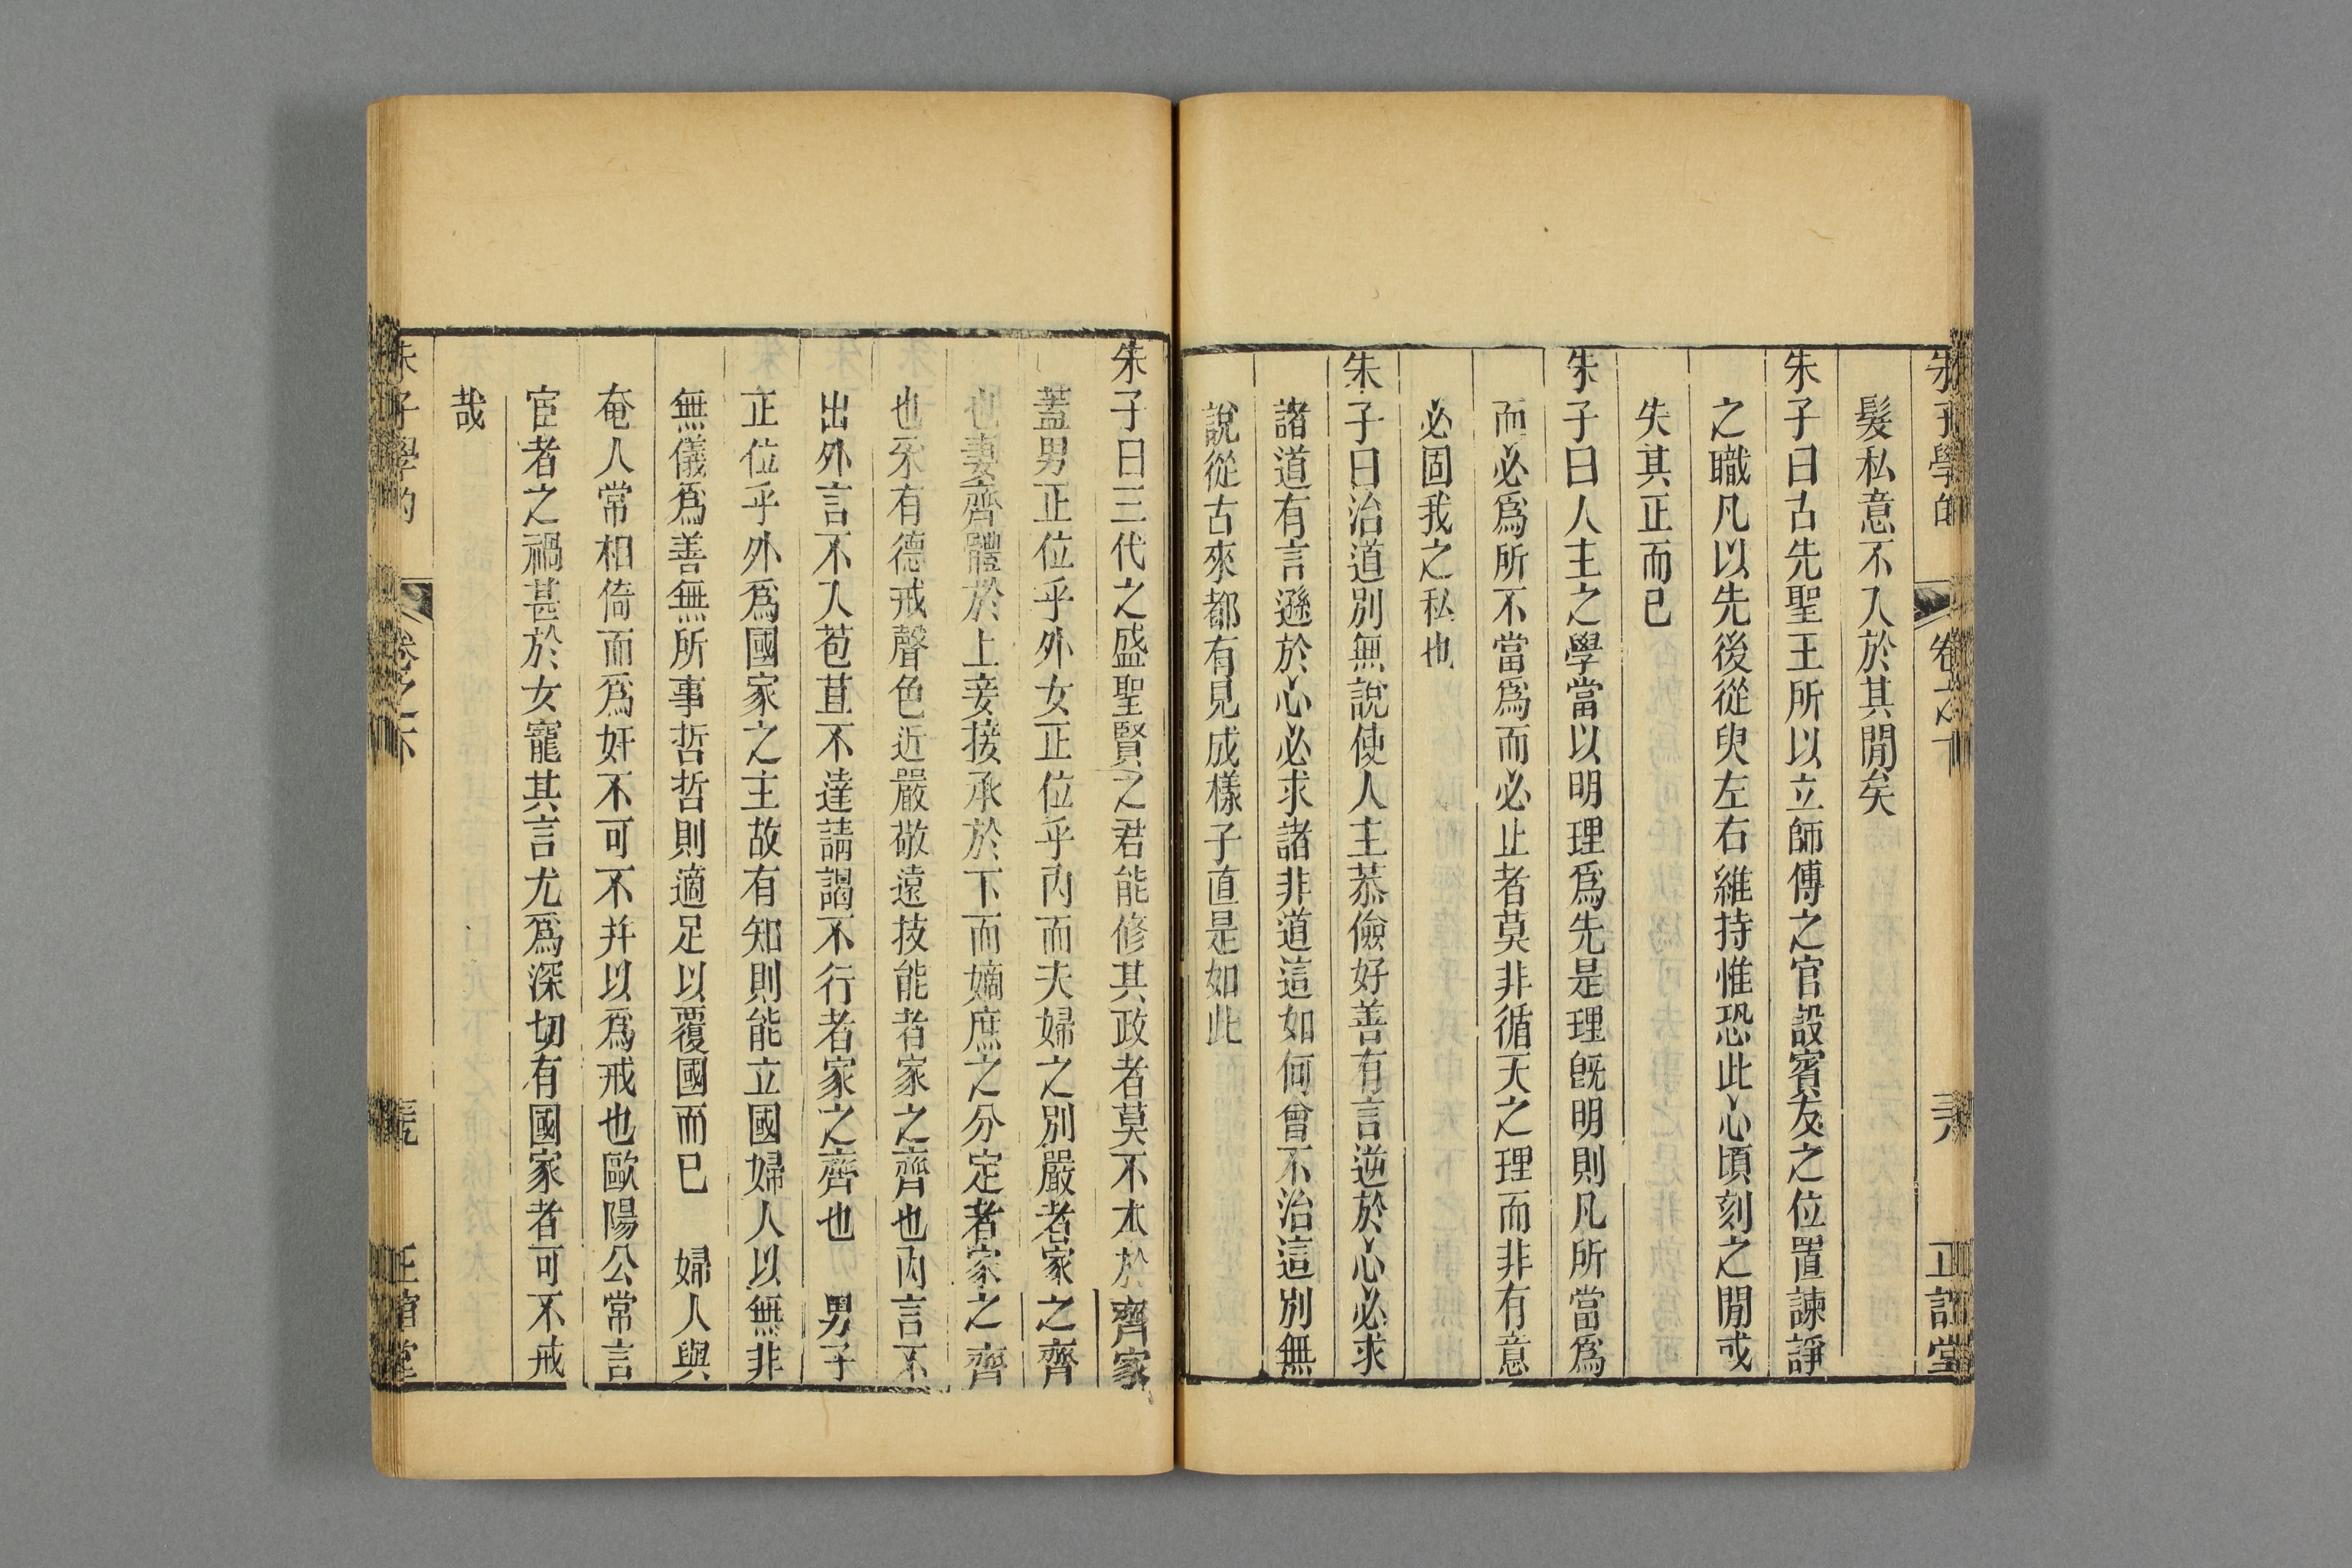 朱子學的 卷之下 三八 正誼堂
髮私意不入於其閒矣
朱子曰古先聖王所以立師傅之官設賓友之位置諫諍
之職凡以先後從臾左右維持惟恐此心頃刻之閒或
失其正而已
朱子曰人主之學當以明理爲先是理旣明則凡所當爲
而必爲所不當爲而必止者莫非循天之理而非有意
必固我之私也
朱子曰治道別無說使人主恭儉好善有言逆於心必求
諸道有言遜於心必求諸非道這如何曾不治這別無
說從古來都有見成樣子直是如此
朱子曰三代之盛聖賢之君能修其政者莫不本於齊家
蓋男正位乎外女正位乎內而夫婦之別嚴者家之齊
也妻齊體於上妾接承於下而嫡庶之分定者家之齊
也采有德戒聲色近嚴敬遠技能者家之齊也內言不
出外言不入苞苴不達請謁不行者家之齊也 男子
正位乎外爲國家之主故有知則能立國婦人以無非
無儀爲善無所事哲哲則適足以覆國而已 婦人與
奄人常相倚而爲奸不可不并以爲戒也歐陽公常言
宦者之禍甚於女寵其言尤爲深切有國家者可不戒
哉
朱子學的 卷之下 正誼堂